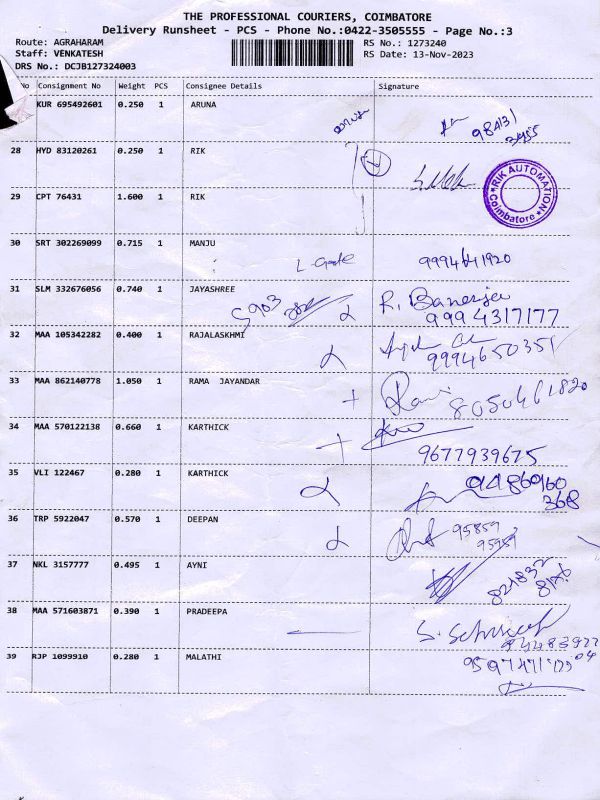 THE PROFESSIONAL COURIERS, COIMBATORE
Delivery Runsheet - PCS - Phone No.:0422-3505555 - Page No.:3
Route: AGRAHARAM RS No.: 1273240
Staff: VENKATESH RS Date: 13-Nov-2023
DRS No.: DCJB127324003
No Consignment No Weight PCS Consignee Details Signature
KUR 695492601 0.250 1 ARUNA
98431
28 HYD 83120261 0.250 1 RIK
RIK AUTOMATION
Coimbatore
29 CPT 76431 1.600 1 RIK
30 SRT 302269099 0.715 1 MANJU
9994641920
31 SLM 332676056 0.740 1 JAYASHREE R. Banerjee
9994317177
32 MAA 105342282 0.400 1 RAJALASKHMI
9994650351
33 MAA 862140778 1.050 1 RAMA JAYANDAR
8050461820
34 MAA 570122138 0.660 1 KARTHICK
9677939675
35 VLI 122467 0.280 1 KARTHICK 9486960
368
36 TRP 5922047 0.570 1 DEEPAN 95859
95959
37 NKL 3157777 0.495 1 AYNI
38 MAA 571603871 0.390 1 PRADEEPA
39 RJP 1099910 0.280 1 MALATHI